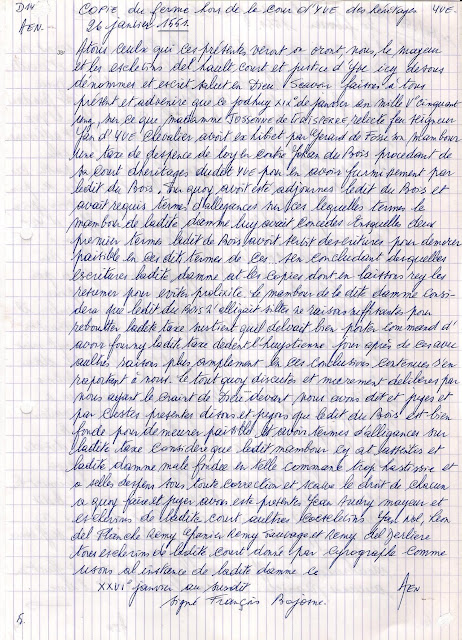 D14 COPIE du ferme hors de la Cour d'YVE des héritages YVE.
AEN. 26 janvier 1551.
A tous ceulx qui ces présentes veront ou oront, nous, le mayeur
et les eschevins del hault court et justice d'Yve icy dessous
dénommés et escrit salut en Dieu. Scavoir faisons à tous
présent et advenire que ce jod'huy XIXe de janvier en mille Ve cinquant
ung, sur ce que madamme Jossenne de relicte feu seigneur
Jan d'YVE Chevalier avoit exhibet par Gérard de Fosse son mambour
une taxe de despence de loy en contre Johan du Bois procedant de
la court d'héritages dudit YVE pour en avoir furnissement par
ledit du Bois. Sur quoy avoit esté adjournés ledit du Bois et
avait requis termes d'allégances sur ces lesquelles termes le
mambour de ladite damme luy avait concédés. Ensquelles deux
premier termes ledit de Bois avoit servit d'escritures pour demorer
paisible en ces dits termes de ces. sen concludant desquelles
escritures ladite damme at les copies dont en laissons icy les
resumer pour eviter prolixité. Le mambour de la dite damme consi-
dera que ledit du Bois n'alligait nilles raisons suffisantes pour
reboutter ladite taxe sustient quel debvait bien porter command d'
avoir fourny ladite taxe dedent l'huystienne jour après de ces avec
aultres raisons plus complement en ces conclusions contenues s'en
raportant à nous. le tout quoy discutés et meurement délibérés par
nous ayant le craint de Dieu devant, nous avons dit et jugés et
par cestes présentes disons et jugons que ledit du Bois est bien
fondé pour demeurer paisible et avoir termes d'alligances sur
ladite taxe considéré que ledit mambour luy at assentis et
ladite damme male fondée en telle command trop hastisse et
a telles despens sous toute correction et scauve le droit de chacun
a quoy faire et juger avons esté présents Jean Audry mayeur et
eschevins de ladite court aultres coeschevins Jan Nol, Léon
del Planche Remy Remy Sauvage et Remy del Derliere
tous eschevins de ladite court donné par cyrographe comme
usons al instance de ladite damme ce
XXVIe janvier au susdit AEN
Signé François Bajomé.